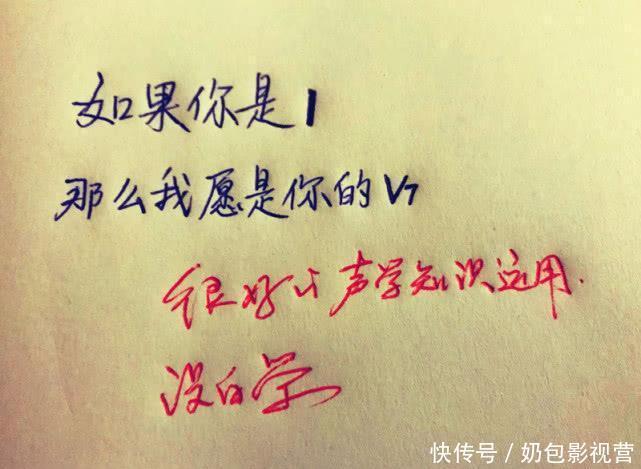 如果你是1
那么我愿是你的V7
很好!声学知识运用.
没白学
快传号/奶包影视营